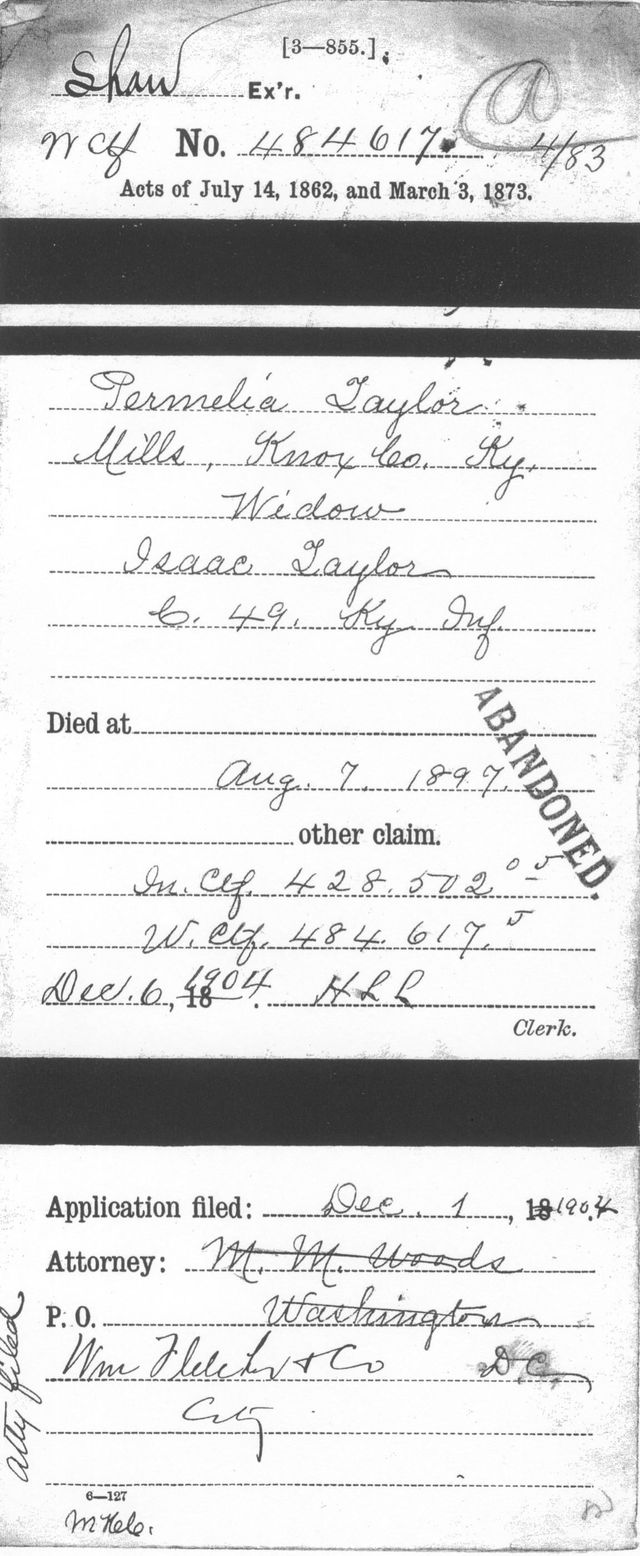 [3—855.]
Shaw Ex'r.
W Ctf No. 484617. 4/83
Acts of July 14, 1862, and March 3, 1873.
Permelia Taylor
Mills, Knox Co. Ky.
Widow
Isaac Taylor
C. 49. Ky Inf.
Died at
Aug. 7. 1897.
ABANDONED.
other claim.
In. Ctf. 428.502
W. Ctf. 484.617.
Dec. 6, 18 1904. H L L
Clerk.
Application filed: Dec. 1, 18 1904
Attorney: M. M. Woods
P. O. Washington
Wm Fletcher & Co D.C.
City
atty filed
6—127